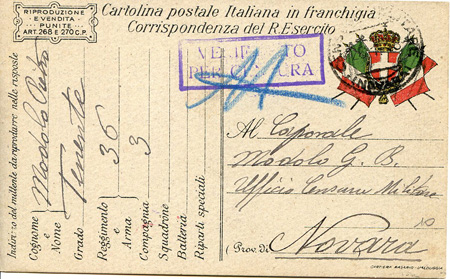 RIPRODUZIONE
E VENDITA
PUNITE
ART. 268 E 270 C.P.
Cartolina postale Italiana in franchigia
Corrispondenza del R. Esercito
VERIFICATO
PER CENSURA
Indirizzo del mittente da riprodurre nelle risposte
Cognome e Nome Modolo
Grado Tenente
Reggimento e Arma 36
Compagnia 3
Squadrone
Batteria
Riparti speciali
Al Caporale
Modolo G. B.
Ufficio Censura Militare
(Prov. di Novara